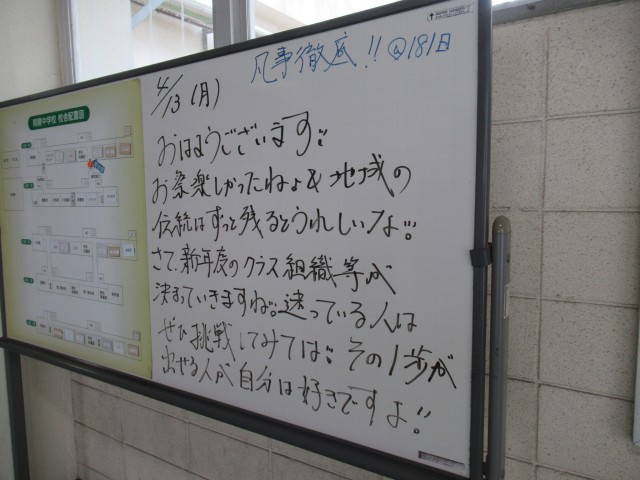 凡事徹底!! @181日
4/13(月)
おはようございます!!
お祭楽しかったねょ& 地域の
伝統はずっと残るとうれしいな!!
さて、新年度のクラス組織等が
決まっていきますね。迷っている人は
ぜひ挑戦してみては!! その1歩が
出せる人が自分は好きですよ!!
中学校 校舎配置図